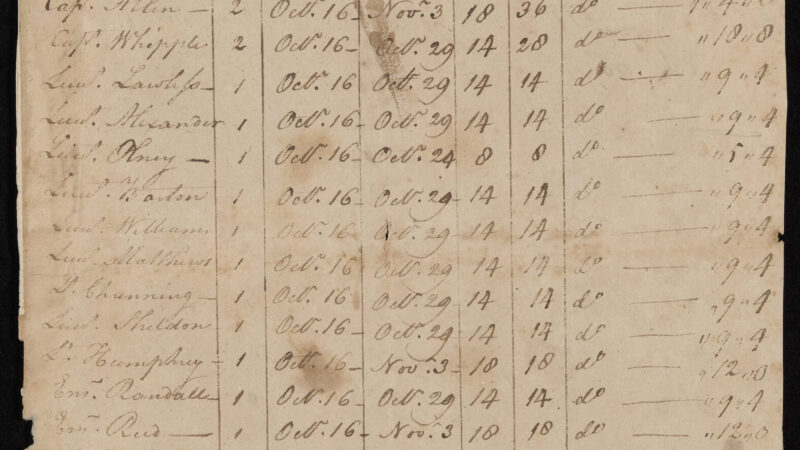 Cap. Allen — 2 Octr. 16 — Novr. 3 18 36 do — „ 4 „ 0
Capt. Whipple 2 Octr. 16 — Octr. 29 14 28 do — „ 18 „ 8
Lieut. Lawless — 1 Octr. 16 Octr. 29 14 14 do — „ 9 „ 4
Lieut. Alexander 1 Octr. 16 — Octr. 29 14 14 do — „ 9 „ 4
Lieut. Olney — 1 Octr. 16 — Octr. 24 8 8 do — „ 5 „ 4
Lieut. Barton 1 Octr. 16 — Octr. 29 — 14 14 do — „ 9 „ 4
Lieut. Williams 1 Octr. 16 Octr. 29 — 14 14 do — „ 9 „ 4
Lieut. Matthews 1 Octr. 16 — Octr. 29 14 14 do — „ 9 „ 4
Lt. Channing — 1 Octr. 16 Octr. 29 14 14 do — „ 9 „ 4
Lieut. Sheldon 1 Octr. 16 — Octr. 29 14 14 do — „ 9 „ 4
Lt. Humphrey — 1 Octr. 16 — Novr. 3 — 18 18 do — „ 12 „ 0
Ens. Randall — 1 Octr. 16 — Octr. 29 14 14 do — „ 9 „ 4
Ens. Reed — 1 Octr. 16 — Novr. 3 18 18 do — „ 12 „ 0